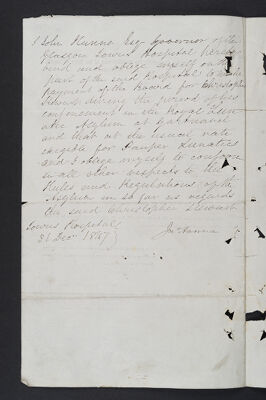 I John Hanna Esq. Governor of the
Glasgow Towns Hospital hereby
bind and oblige myself on the
part of the said Hospital to make
payment of the board for Christopher
Stewart during the period of his
confinement in the Royal Luna-
tic Asylum at Gartnavel
and that at the usual rate
exigible for Pauper Lunatics
and I oblige myself to conform
in all other respects to the
Rules and Regulations of the
Asylum in so far as regards
the said Christopher Stewart
Towns Hospital
31 Decr 1847
Jno Hanna